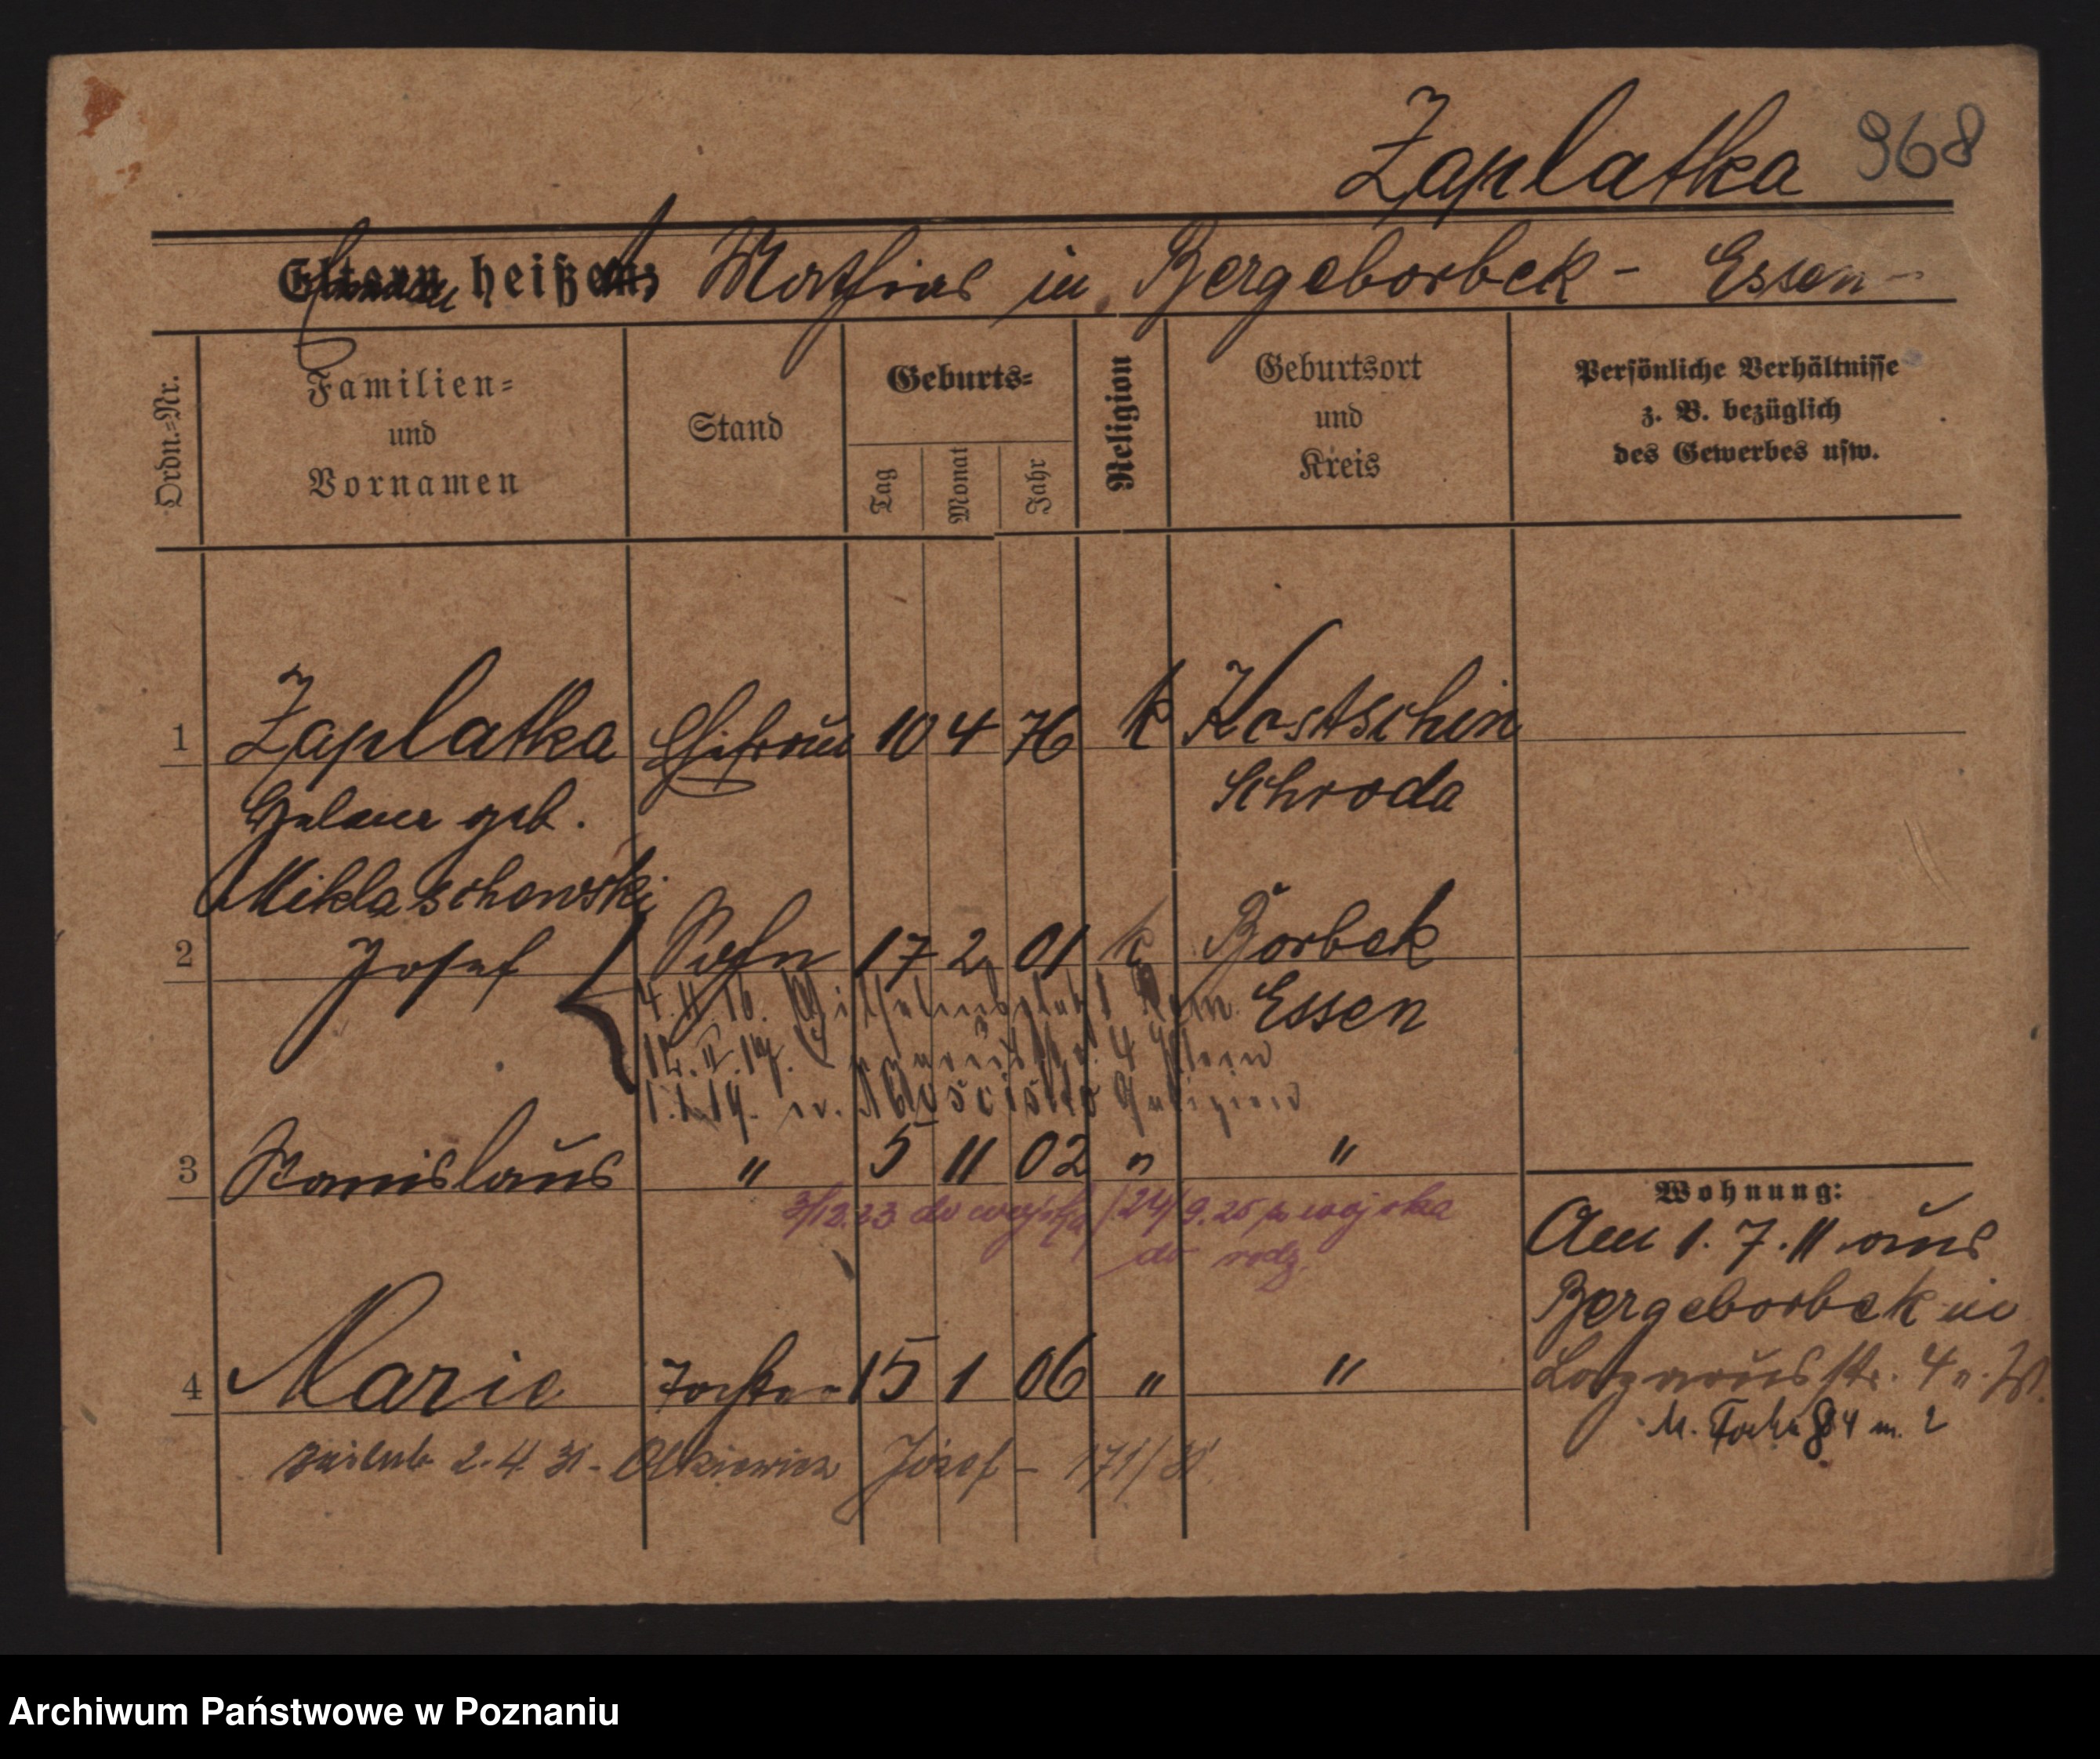 Zaplatka 968
Eltern heißen: Mathias in Bergeborbek - Essen -
Ordn.=Nr.
Familien=
und
Vornamen
Stand
Geburts=
Tag
Monat
Jahr
Religion
Geburtsort
und
Kreis
Persönliche Verhältnisse
z. B. bezüglich
des Gewerbes usw.
1 Zaplatka Ehefrau 10 4 76 k Kostschin
Schroda
geb.
Miklaschewski
2 Josef Sohn 17 2 01 k Borbek
Essen
4. 11. 16.
12. II. 17. 4
1. 1. 19.
3 Stanislaus " 5 11 02 " "
3/12.23 do wojska / 24/9.25 z wojska
do rodz.
Wohnung:
Am 1. 7. 11 aus
Bergeborbek in
4 Marie Tochter 15 1 06 " "
Lazarusstr. 4
M. Focha 84 m. 2
zaślub. 2.4.31 - Olkiewicz Józef - 171/31
Archiwum Państwowe w Poznaniu